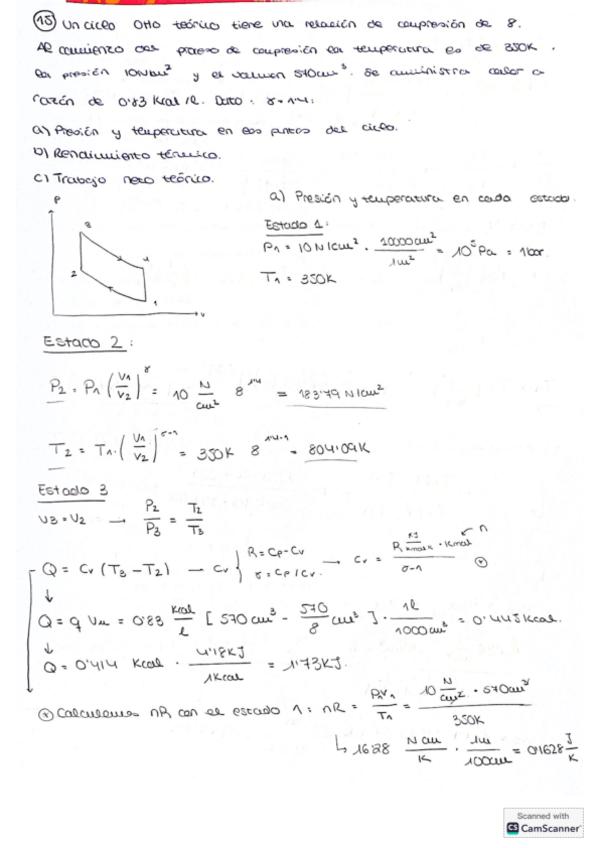 15) Un ciclo Otto teórico tiene una relación de compresión de 8.
Al comienzo del proceso de compresión la temperatura es de 350K,
la presión 10N/cm² y el volumen 570cm³. Se suministra calor a
razón de 0'83 Kcal/l. Dato: γ=1'4:
a) Presión y temperatura en los puntos del ciclo.
b) Rendimiento térmico.
c) Trabajo neto teórico.
a) Presión y temperatura en cada estado.
P
3
2
4
1
v
Estado 1:
P1 = 10 N/cm² · 10000cm²/1m² = 10⁵ Pa = 1bar
T1 = 350K
Estado 2:
P2 = P1 (V1/V2)^γ = 10 N/cm² 8^1'4 = 183'79 N/cm²
T2 = T1·(V1/V2)^γ-1 = 350K 8^1'4-1 = 804'09K
Estado 3
V3=V2 → P2/P3 = T2/T3
Q = Cv (T3-T2) → Cv { R=Cp-Cv γ=Cp/Cv. → Cv = R KJ/Kmol·K · Kmol / γ-1 ← n (*)
Q = q Vu = 0'83 Kcal/l [570cm³ - 570/8 cm³]·1l/1000cm³ = 0'445Kcal.
Q = 0'414 Kcal · 4'18KJ/1Kcal = 1'73KJ.
(*) Calculamos nR con el estado 1: nR = P1V1/T1 = 10 N/cm² · 570cm³ / 350K
↳ 16'28 N cm/K · 1m/100cm = 0'1628 J/K
Scanned with
CS CamScanner